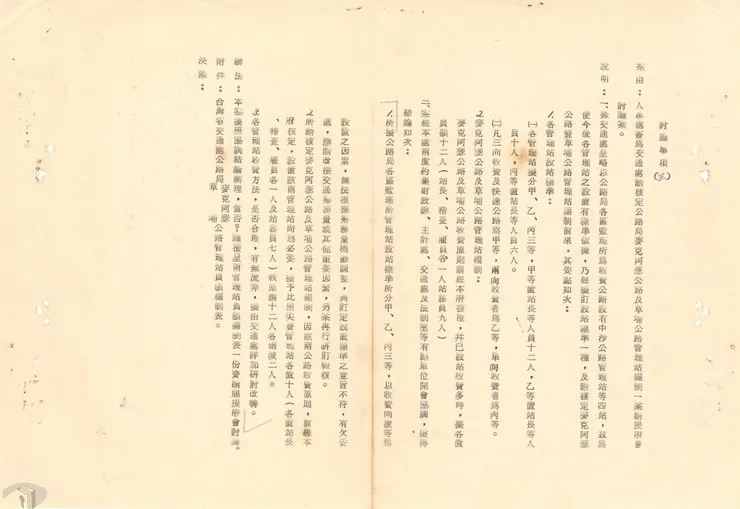 討論事項（三）
案由：人事處簽爲交通處請核定公路局麥克阿瑟公路及草埔公路管理站編制一案請提府會
討論案。
說明：一、據交通處呈略以公路局各區監理所爲收費公路設有中沙公路管理站等四站，茲爲
使今後各管理站之設置有標準依據，乃經擬訂設站標準一種，及請核定麥克阿瑟
公路暨草埔公路管理站編制前來，其要點如次：
1.各管理站設站標準：
㈠各管理站擬分甲、乙、丙三等，甲等置站長等人員十二人，乙等置站長等人
員十人，丙等置站長等人員六人。
㈡凡三向收費及快速公路爲甲等，兩向收費者爲乙等，單向收費者爲丙等。
2.麥克阿瑟公路及草埔公路管理站編制：
麥克阿瑟公路及草埔公路收費原則前經本府核准，并已設站收費多時，擬各置
員額十二人（站長、稽查、雇員各一人站務員九人）
二、案經本處兩度約集財政廳、主計處、交通處及法制室等有關單位開會協調，獲得
結論如次：
1.所擬公路局各區監理所管理站設站標準所分甲、乙、丙三等，以收費向度等爲
設置之因素，無法根據業務量機動調整，與訂定設置標準之意旨不符，有欠妥
適，應請改按交通業務量或其他重要因素，另案再行研訂報核。
2.所請核定麥克阿瑟公路及草埔公路管理站編制，因該兩公路收費原則，前經本
府核定，設置該兩管理站尚屬必要，擬予比照大度管理站各置十人（各置站長
、稽查、雇員各一人及站務員七人）較原請十二人各減二人。
3.各管理站收費方法，是否合理，有無流弊，擬由交通處詳加研討改善。
辦法：本案擬照協調結論辦理，當否？謹檢呈兩管理站員額編制表一份簽請賜提府會討論。
附件：台灣省交通處公路局麥克阿瑟草埔公路管理站員額編制表。
決議：